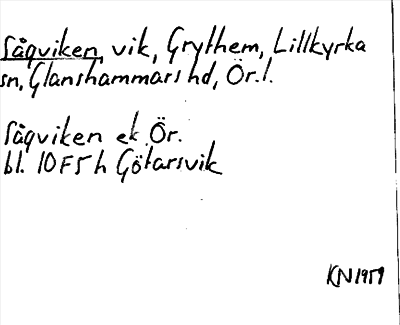 Sågviken, vik, Grythem, Lillkyrka
sn, Glanshammars hd, Ör. l.
Sågviken ek. Ör.
bl. 10F5h Götarsvik